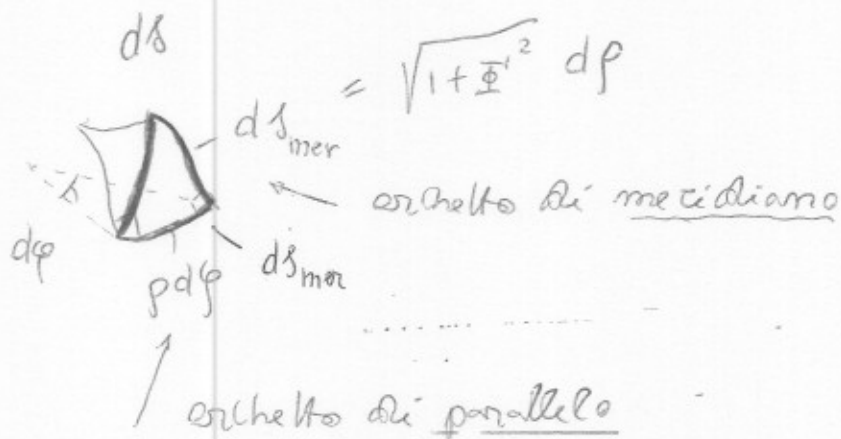 ds
ds_mer = √(1 + Φ'²) dρ
archetto di meridiano
dφ
ρdφ
ds_mer
archetto di parallelo